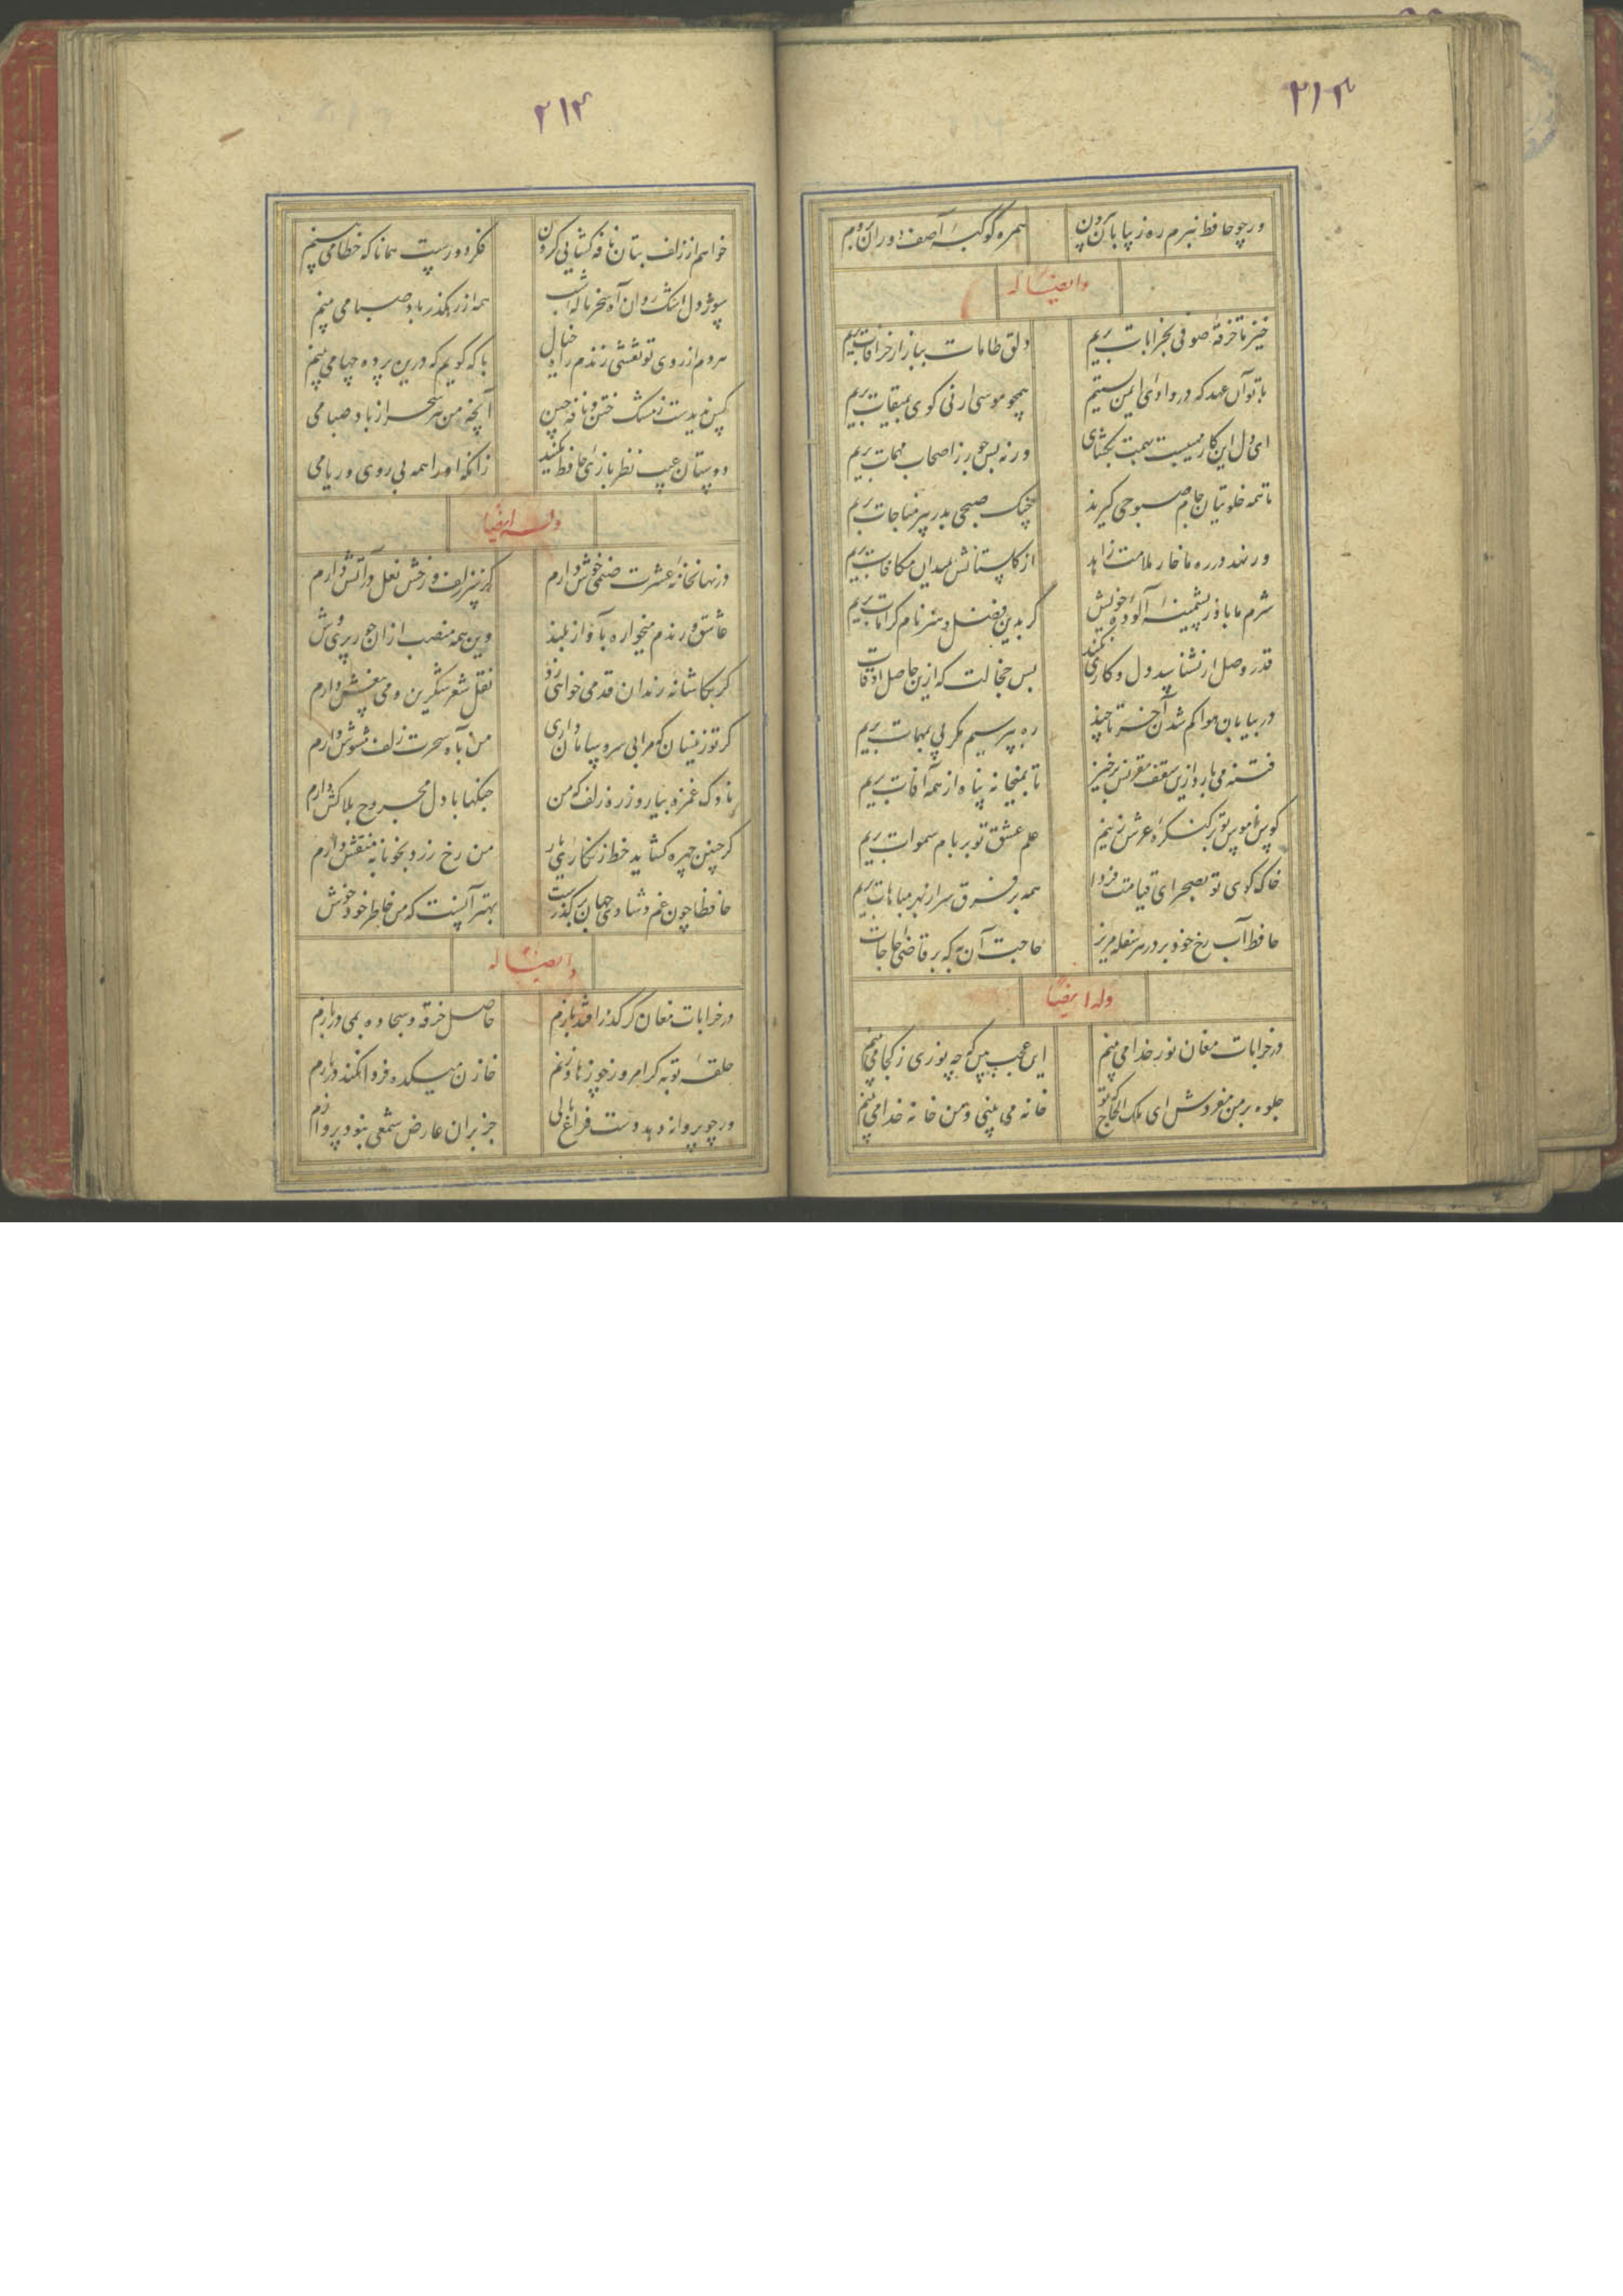 ۲۱۳
ورچو حافظ نبرم ره ز بیابان بیرون همره کوکبهٔ آصف دوران بروم
وایضاً له
خیز تا خرقهٔ صوفی بخرابات بریم دلق طامات ببازار خرافات بریم
با تو آن عهد که در وادی ایمن بستیم همچو موسی ارنی گوی بمیقات بریم
ای دل این کار بهمت بگشای ورنه بس جور ز اصحاب مهمات بریم
تا همه خلوتیان جام صبوحی گیرند چنگ صبحی بدر پیر مناجات بریم
ور نهد در ره ما خار ملامت زاهد از گلستانش بمیدان مکافات بریم
شرم ما باد ز پشمینهٔ آلودهٔ خویش گر بدین فضل و هنر نام کرامات بریم
قدر وصل ار نشناسد دل و کاری نکند بس خجالت که ازین حاصل اوقات بریم
در بیابان هوا گم شدن آخر تا چند ره بپرسیم مگر پی بمهمات بریم
فتنه می بارد ازین سقف مقرنس برخیز تا بمیخانه پناه از همه آفات بریم
کوس ناموس تو بر کنگرهٔ عرش زنیم علم عشق تو بر بام سموات بریم
خاک کوی تو بصحرای قیامت فردا همه بر فرق سر از بهر مباهات بریم
حافظ آب رخ خود بر در هر سفله مریز حاجت آن به که بر قاضی حاجات
وله ایضاً
در خرابات مغان نور خدا می بینم این عجب بین که چه نوری ز کجا می بینم
جلوه بر من مفروش ای ملک الحاج که تو خانه می بینی و من خانه خدا می بینم
۲۱۴
خواهم از زلف بتان نافه گشایی کردن فکر دورست همانا که خطا می بینم
سوز دل اشک روان آه سحر نالهٔ شب همه از رهگذر باد صبا می بینم
هر دم از روی تو نقشی زندم راه خیال با که گویم که درین پرده چها می بینم
کس ندیدست ز مشک ختن و نافه چین آنچه من هر سحر از باد صبا می
دوستان عیب نظر بازی حافظ مکنید زانکه او را همه بی روی و ریا می
وله ایضاً
در نهانخانهٔ عشرت صنمی خوش دارم کز سر زلف و رخش نعل در آتش دارم
عاشق و رندم میخواره بآواز بلند وین همه منصب از آن حور پری وش
گر بکاشانه رندان قدمی خواهی زد نقل شعر شکرین و می بیغش دارم
گر تو زینسان مرا بی سر و سامان داری من بآه سحرت زلف مشوش دارم
ناوک غمزه بیار و زره زلف که من جنگها با دل مجروح بلاکش دارم
گر چنین چهره گشاید خط زنگاری یار من رخ زرد بخونابه منقش دارم
حافظا چون غم و شادی جهان در گذرست بهتر آنست که من خاطر خود خوش
وایضاً له
در خرابات مغان گر گذر افتد بازم حاصل خرقه و سجاده بمی در بازم
حلقه توبه گر امروز چو زهاد زنم خازن میکده فردا نکند در بازم
ور چو پروانه دهد دست فراغ بالی جز بر آن عارض شمعی نبود پروازم